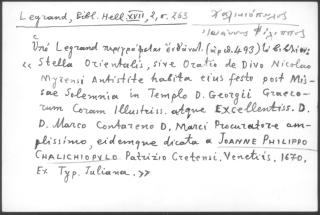 Legrand, Bibl. Hell. XVII, 2, σ. 263
Χαλικιόπουλος
Ἰωάννης Φίλιππος
Ὑπὸ Legrand περιγράφεται
« Stella Orientalis, sive Oratio de Divo Nicolao
Myrensi Antistite habita eius festo post Mis-
sae Solemnia in Templo D. Georgii Graeco-
rum Coram Illustriss. atque Excellentiss. D.
D. Marco Contareno D. Marci Procuratore am-
plissimo, eidemque dicata a JOANNE PHILIPPO
CHALICHIOPULO Patrizio Cretensi. Venetiis, 1670,
Ex Typ. Juliana. »